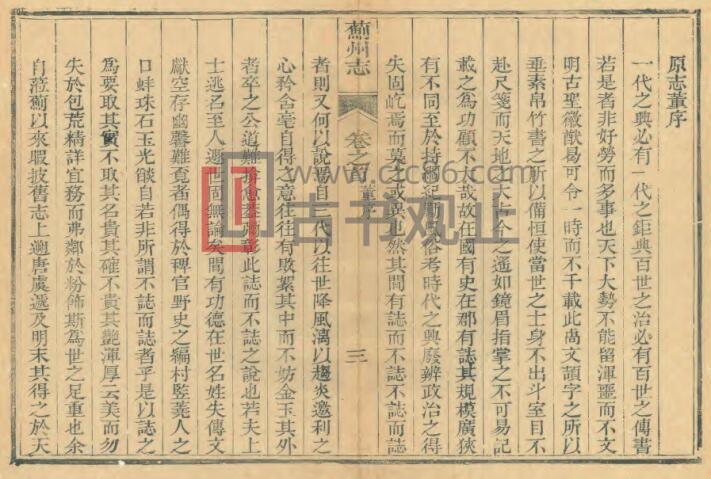 原志董序
一代之興必有一代之鉅典百世之治必有百世之傳書
若是者非好勞而多事也天下大勢不能留渾噩而不文
明古聖徽猷曷可令一時而不千載此尚文頡字之所以
垂素帛竹書之所以備恒使當世之士身不出斗室目不
赴尺箋而天地之大古今之遥如鏡眉指掌之不可易記
載之為功顧不大哉故在國有史在郡有誌其規模廣狹
有不同至於持 紀 俗考時代之興廢辨政治之得
失固屹焉而莫之或異也然其間有誌而不誌不誌而誌
薊州志
卷之首
董序
三
者則又何以說焉自三代以往世降風漓以趨炎邀利之
心矜含毫自得之意往往有敗絮其中而不妨金玉其外
者卒之公道難掩愈蓋 彰此誌而不誌之說也若夫上
士逃名至人遯世固無論矣間有功德在世名姓失傳文
獻空存幽馨難覓者偶得於稗官野史之編村豎蕘人之
口蚌珠石玉光燄自若非所謂不誌而誌者乎是以誌之
為要取其實不取其名貴其確不貴其艷渾厚云美而勿
失於包荒精詳宜務而弗鄰於粉飾斯為世之足重也余
自蒞薊以來暇披舊志上遡唐虞遞及明末其得之於天
www.cc66.com
古书观止